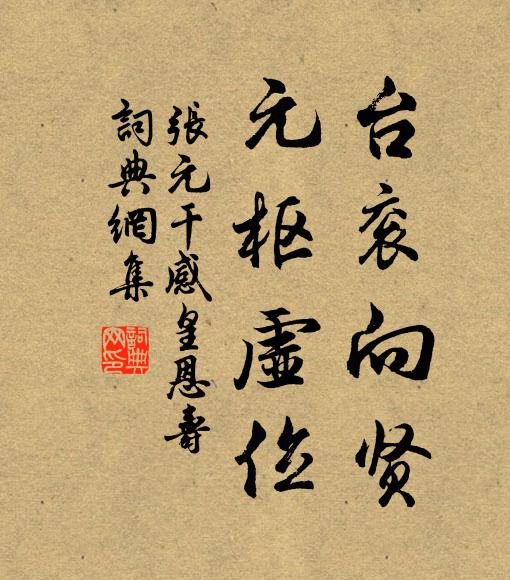 台衮向贤
元枢虛位
張元干感皇恩壽
詞典網集
詞典网印